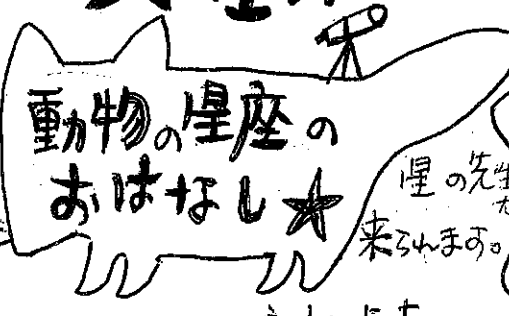 動物の星座の
おはなし★
星の先生が
来られます。